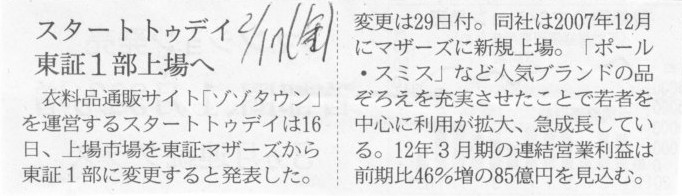 スタートトゥデイ
東証1部上場へ
2/17(金)
衣料品通販サイト「ゾゾタウン」
を運営するスタートトゥデイは16
日、上場市場を東証マザーズから
東証1部に変更すると発表した。
変更は29日付。同社は2007年12月
にマザーズに新規上場。「ポール
・スミス」など人気ブランドの品
ぞろえを充実させたことで若者を
中心に利用が拡大、急成長してい
る。12年3月期の連結営業利益は
前期比46%増の85億円を見込む。